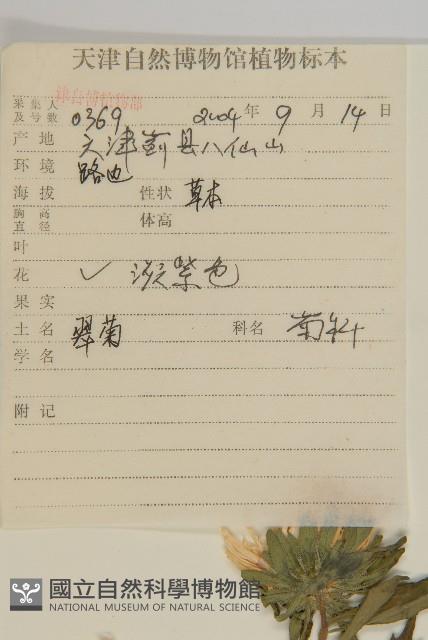 天津自然博物馆植物标本
采集人及号数 0369 2004年 9月 14日
产地 天津蓟县八仙山
环境 路边
海拔 性状 草本
胸高直径 体高
叶
花 ✓ 淡紫色
果实
土名 翠菊 科名 菊科
学名
附记
國立自然科學博物館
NATIONAL MUSEUM OF NATURAL SCIENCE